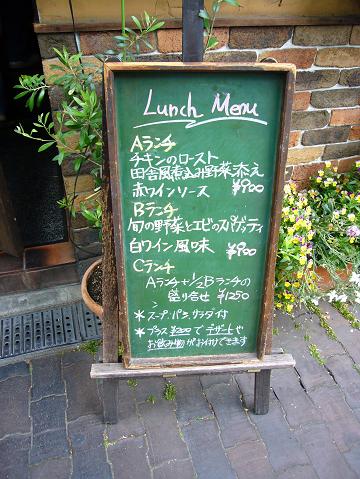 Lunch Menu
Aランチ
チキンのロースト
田舎風煮込み野菜添え
赤ワインソース ¥900
Bランチ
旬の野菜とエビのスパゲッティ
白ワイン風味 ¥900
Cランチ
Aランチ+1/2Bランチの
盛り合せ ¥1250
*スープ、パン、サラダ付
*プラス¥200でデザートや
お飲み物がお付けできます